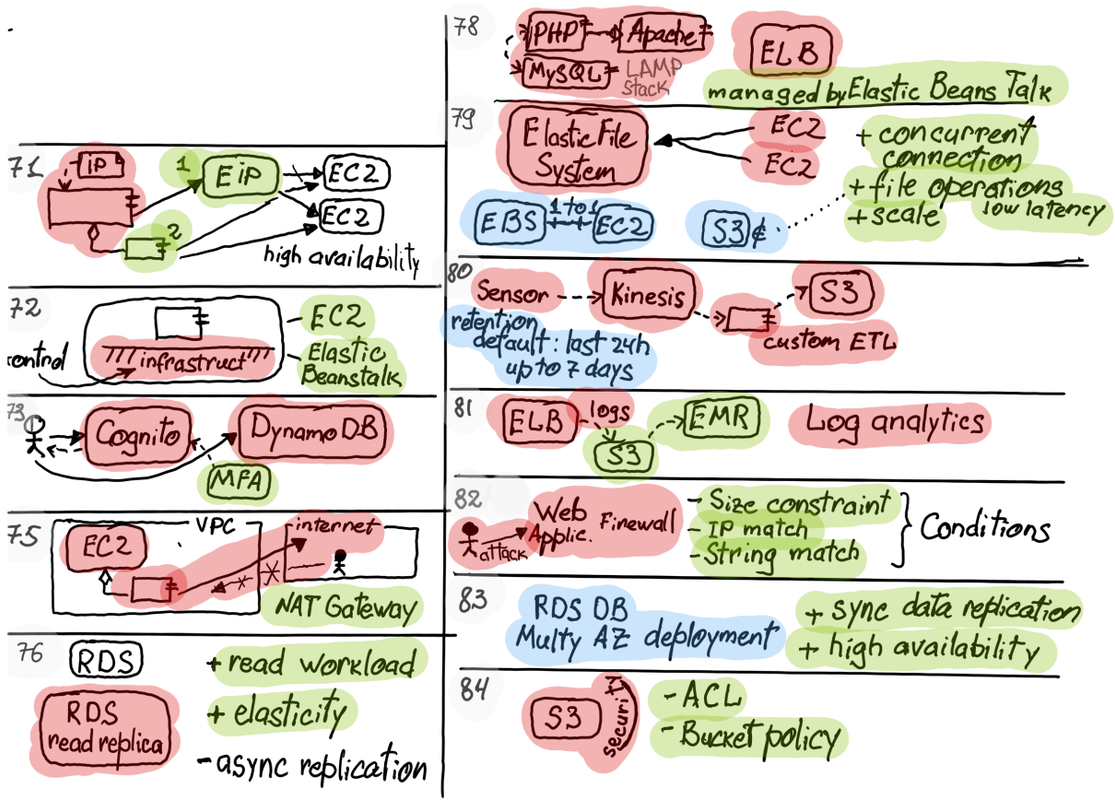 71
iP
1
EiP
EC2
EC2
2
high availability
72
control
infrastruct
EC2
Elastic
Beanstalk
73
Cognito
DynamoDB
MFA
75
VPC
internet
EC2
NAT Gateway
76
RDS
+ read workload
RDS
read replica
+ elasticity
- async replication
78
PHP
Apache
MySQL
LAMP
Stack
ELB
managed by Elastic Beans Talk
79
Elastic File
System
EC2
EC2
+ concurrent
connection
+ file operations
low latency
+ scale
EBS
1 to 1
EC2
S3
¢
80
Sensor
Kinesis
S3
custom ETL
retention
default: last 24h
up to 7 days
81
ELB
logs
S3
EMR
Log analytics
82
attack
Web
Applic. Firewall
- Size constraint
- IP match
- String match
Conditions
83
RDS DB
Multy AZ deployment
+ sync data replication
+ high availability
84
S3
security
- ACL
- Bucket policy